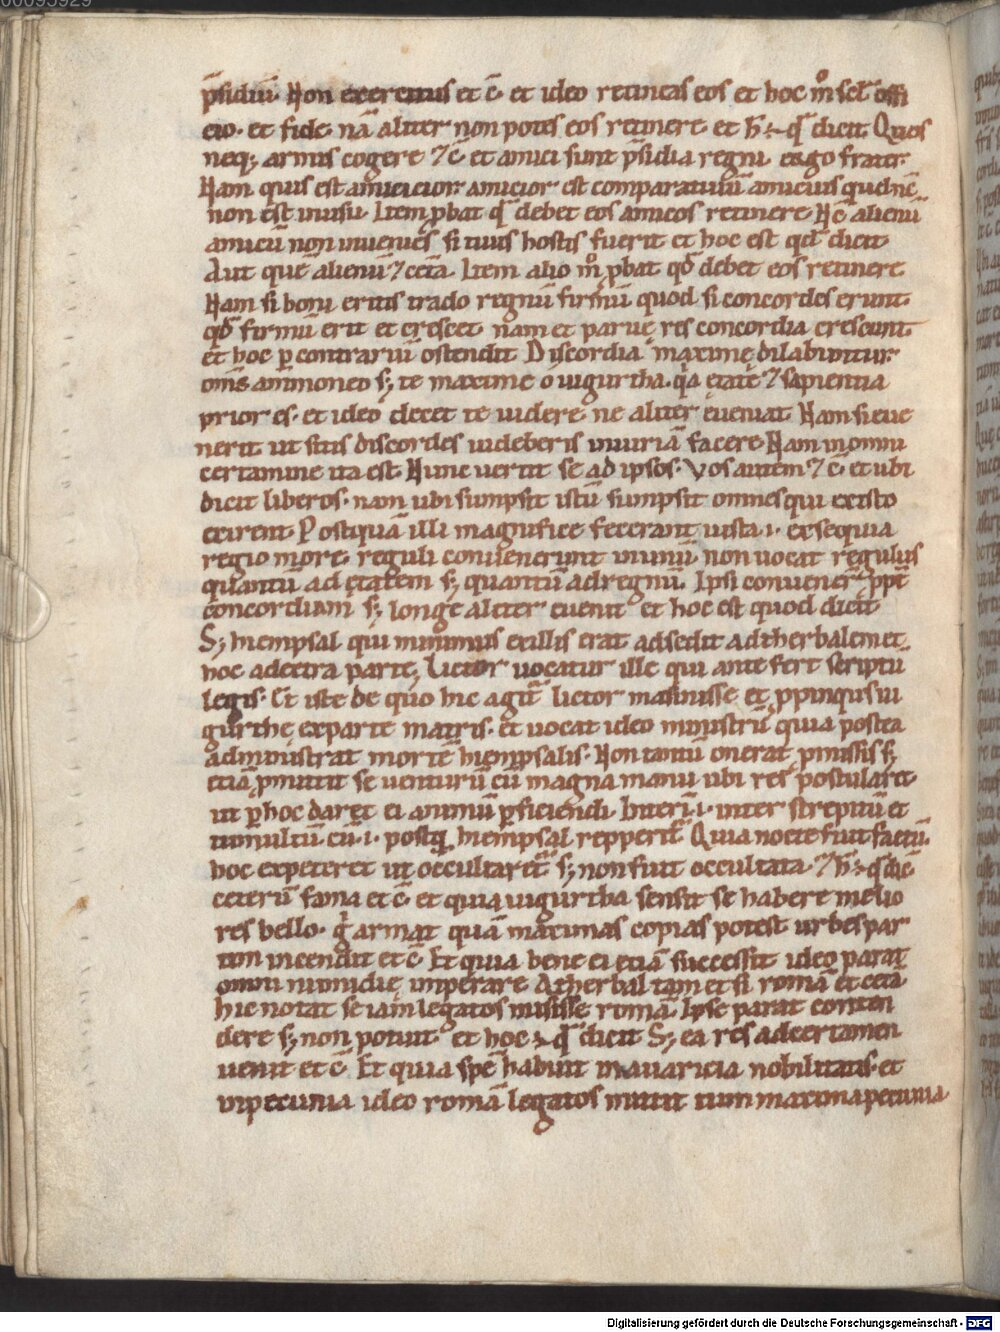 00095929
p̄sidiū. Non exercitus et c̄. et ideo retineas eos et hoc m̊ scil' offi
cio. et fide. nā aliter non potes eos retinere. et h̄ ÷ qđ dicit Quos
neq; armis cogere ⁊ c̄. et amici sunt p̄sidia regni. ergo frater.
Nam quis est amicicior. amicior est comparatiuū amicius quod nc̄
non est in usu. Item ꝓbat qđ debet eos amicos retinere. Nc̄ alienū
amicū non inuenies si tuis hostis fuerit et hoc est qđ dicit
Aut quē alienū ⁊ cet̄a. Item alio m̊ ꝓbat qđ debet eos retinere
Nam si boni eritis trado regnū firmū quod si concordes erunt
qđ firmū erit et crescet. nam et paruę res concordia crescunt
et hoc ꝑ contrariū ostendit Discordia maximę dilabuntur.
om̄s ammoneo s; te maxime o iugurtha. q̇a ętate ⁊ sapientia
prior es. et ideo decet te uidere ne aliter eueniat. Nam si eue
nerit ut sitis discordes uideberis iniuriā facere. Nam in omni
certamine ita est. Nunc uertit se ad ipsos. Vos autem ⁊ c̄. et ubi
dicit liberos. nam ubi sumpsit istū sumpsit omnes qui ex isto
exirent. Postquā illi magnifice fecerant iusta .i. exsequia
regio more. reguli conuenerunt in unū. non uocat regulus
quantū ad ętatem s; quantū ad regnū. Ipsi conuener̄ ꝓpt̄
concordiam s; longe aliter euenit. et hoc est quod dicit
S; hiempsal qui minimus ex illis erat adsedit adtherbalem et
hoc a dextra parte. Lictor uocatur ille qui ante fert scriptū
legis. Et iste de quo hic agit̄ lictor masinisse et ꝓpinqus iu
gurthę ex parte matris. et uocat ideo ministrū quia postea
administrat mortē hiempsalis. Non tantū onerat ꝓmissis s;
etiā ꝓmittit se uenturū cū magna manu ubi res postularet
ut ꝑ hoc daret ei animū ꝑficiendi. Interī .i. inter strepitū et
tumultū cū .i. postq̄ hiempsal repperit̄. Quia nocte fuit factū.
hoc expeteret ut occultaret̄ s; non fuit occultata. ⁊ h̄ ÷ qđ dic̄
ceterū fama et c̄. et quia iugurtha sensit se habere melio
res bello. q̇ armat quā maximas copias potest. urbes par
tim incendit et c̄. Et quia bene ei etiā successit ideo parat
omni numidię imperare. Atherbal tam et si romā et cet̄a
hic notat se iam legatos misisse romā. Ipse parat conten
dere s; non potuit. et hoc ÷ qđ dicit S; ea res ad certamen
uenit et c̄. Et quia spē habuit in auaricia nobilitatis. et
in pecunia ideo romā legatos mittit cum maxima pecunia
Digitalisierung gefördert durch die Deutsche Forschungsgemeinschaft - DFG